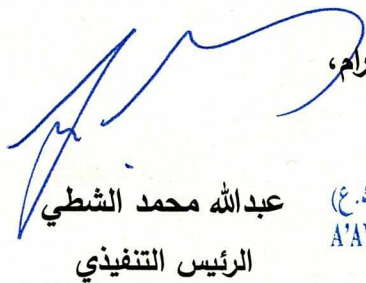 عبدالله محمد الشطي
الرئيس التنفيذي